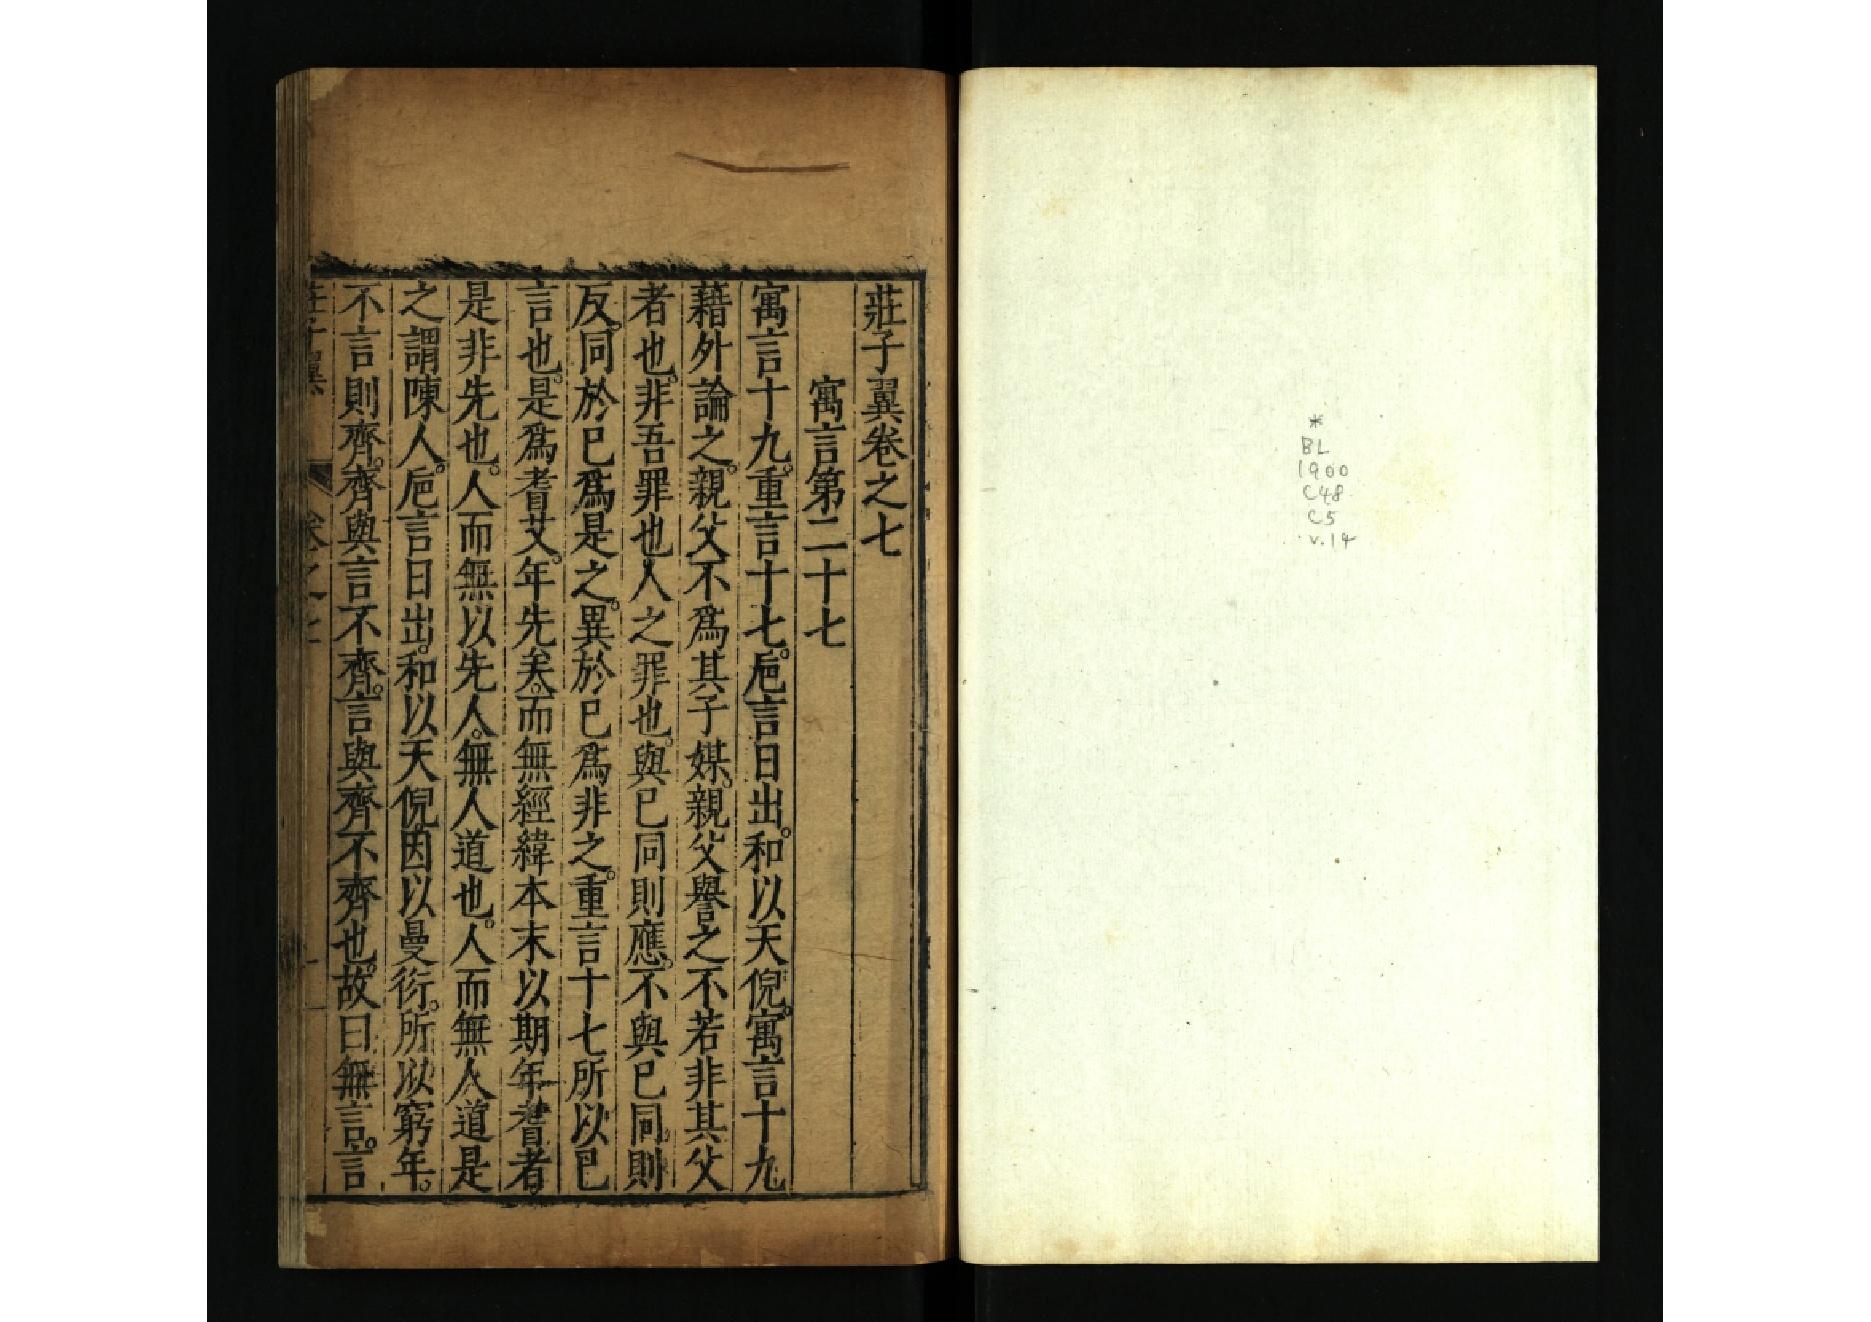 *
BL
1900
C48
C5
v.14
莊子翼卷之七
寓言第二十七
寓言十九。重言十七。巵言日出。和以天倪。寓言十九
藉外論之。親父不爲其子媒。親父譽之不若非其父
者也。非吾罪也人之罪也。與已同則應。不與已同。則
反。同於已爲是之。異於已爲非之。重言十七所以已
言也。是爲耆艾。年先矣。而無經緯本末以期年耆者。
是非先也。人而無以先人。無人道也。人而無人道是
之謂陳人。巵言日出。和以天倪。因以曼衍。所以窮年。
不言則齊。齊與言不齊。言與齊不齊也。故曰無言。言
莊子翼 卷之七 一